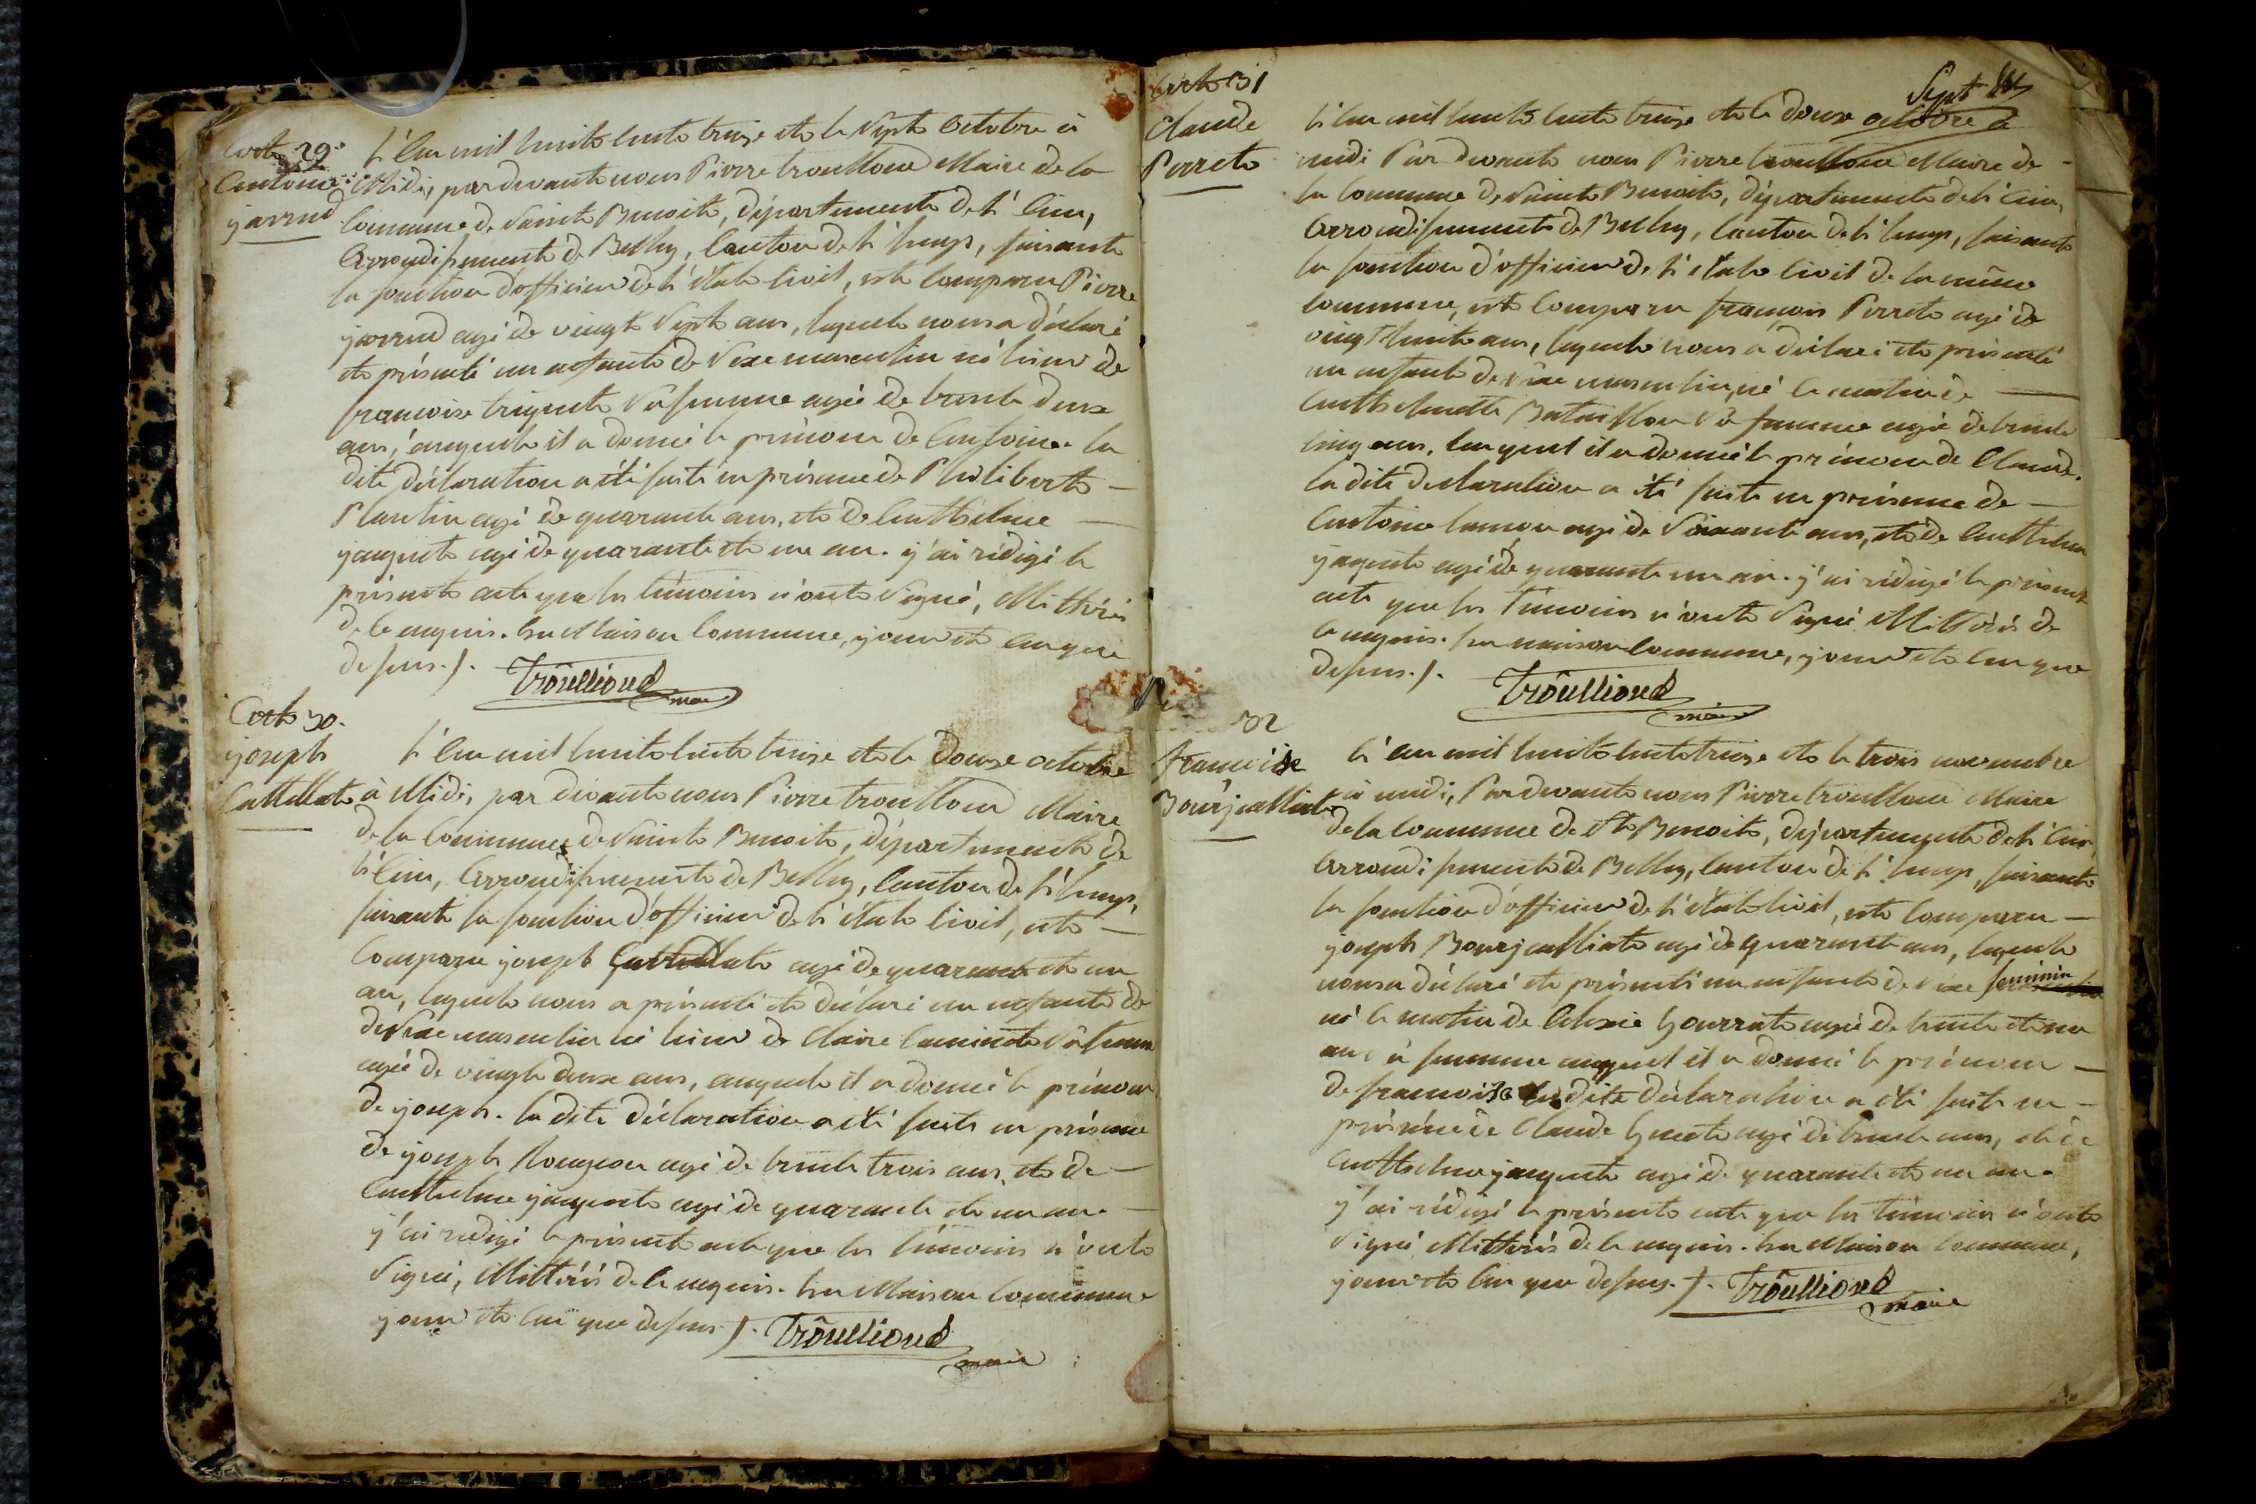 Acte 29.
Antoine
javrud
L'an mil huit cents treize et le Sept Octobre à
Midi, par devant nous Pierre troullioud Maire de la
Commune de Saint Benoit, département de L'Ain,
Arrondissement de Belley, Canton de L'huys, faisant
la fonction d'officier de L'état Civil, est Comparu Pierre
javrud agé de vingt Sept ans, lequel nous a déclaré
et présenté un enfant de Sexe masculin né hier de
francoise triquet Sa femme agée de trente deux
ans, auquel il a donné le prénom de Antoine. la
dite déclaration a été faite en présence de Philibert
Plantin agé de quarante ans, et de Anthelme
jaquet agé de quarante et un an. j'ai rédigé le
présent acte que les témoins n'ont Signé, Illitérés
de ce enquis. En Maison Commune, jour et an que
dessus./. Troullioud
maire
Acte 30.
joseph
L'an mil huit cents treize et le Douze octobre
à Midi, par devant nous Pierre troullioud Maire
de la Commune de Saint Benoit, département de
L'Ain, Arrondissement de Belley, Canton de L'huys,
faisant la fonction d'officier de L'état Civil, est
Comparu joseph agé de quarante et un
an, lequel nous a présenté et déclaré un enfant de
de Sexe masculin né hier de Claire Sa femme
agée de vingt deux ans, auquel il a donné le prénom
de joseph. la dite déclaration a été faite en présence
de joseph Rougeon agé de trente trois ans, et de
Anthelme jaquet agé de quarante et un an.
j'ai rédigé le présent acte que les témoins n'ont
Signé, Illitérés de ce enquis. En Maison Commune
jour et an que dessus ./. Troullioud
maire
Acte 31
Claude
Perret
Sept
L'an mil huit cents treize et le douze octobre à
midi Par devant nous Pierre troullioud Maire de
la Commune de Saint Benoit, département de L'Ain,
Arrondissement de Belley, Canton de L'huys, faisant
la fonction d'officier de L'état Civil de la même
Commune, est Comparu françois Perret agé de
vingt huit ans, lequel nous a déclaré et présenté
un enfant de Sexe masculin, né le matin de
Anthelmette Bataillon Sa femme agée de trente
cinq ans, auquel il a donné le prénom de Claude.
la dite declaration a été faite en présence de
Antoine agé de Soixante ans, et de Anthelme
jaquet agé de quarante un an. j'ai rédigé le présent
acte que les Témoins n'ont Signé Illitérés de
ce enquis. En maison Commune, jour et an que
dessus./. Troullioud
maire
32
francoise
Bourjailliat
L'an mil huit cents treize et le trois novembre
à midi, Par devant nous Pierre troullioud Maire
de la Commune de St Benoit, département de L'Ain,
Arrondissement de Belley, Canton de L'huys, faisant
la fonction d'officier de L'état Civil, est Comparu
joseph Bourjailliat agé de quarante ans, lequel
nous a déclaré et présenté un enfant de Sexe feminin
né le matin de Alexie agée de trente et un
an Sa femme auquel il a donné le prénom
de francoise la dite déclaration a été faite en
présence de Claude agé de trente ans, et de
Anthelme jaquet agé de quarante et un an.
j'ai rédigé le présent acte que les témoins n'ont
Signé Illitérés de ce enquis. En Maison Commune,
jour et an que dessus./. Troullioud
maire